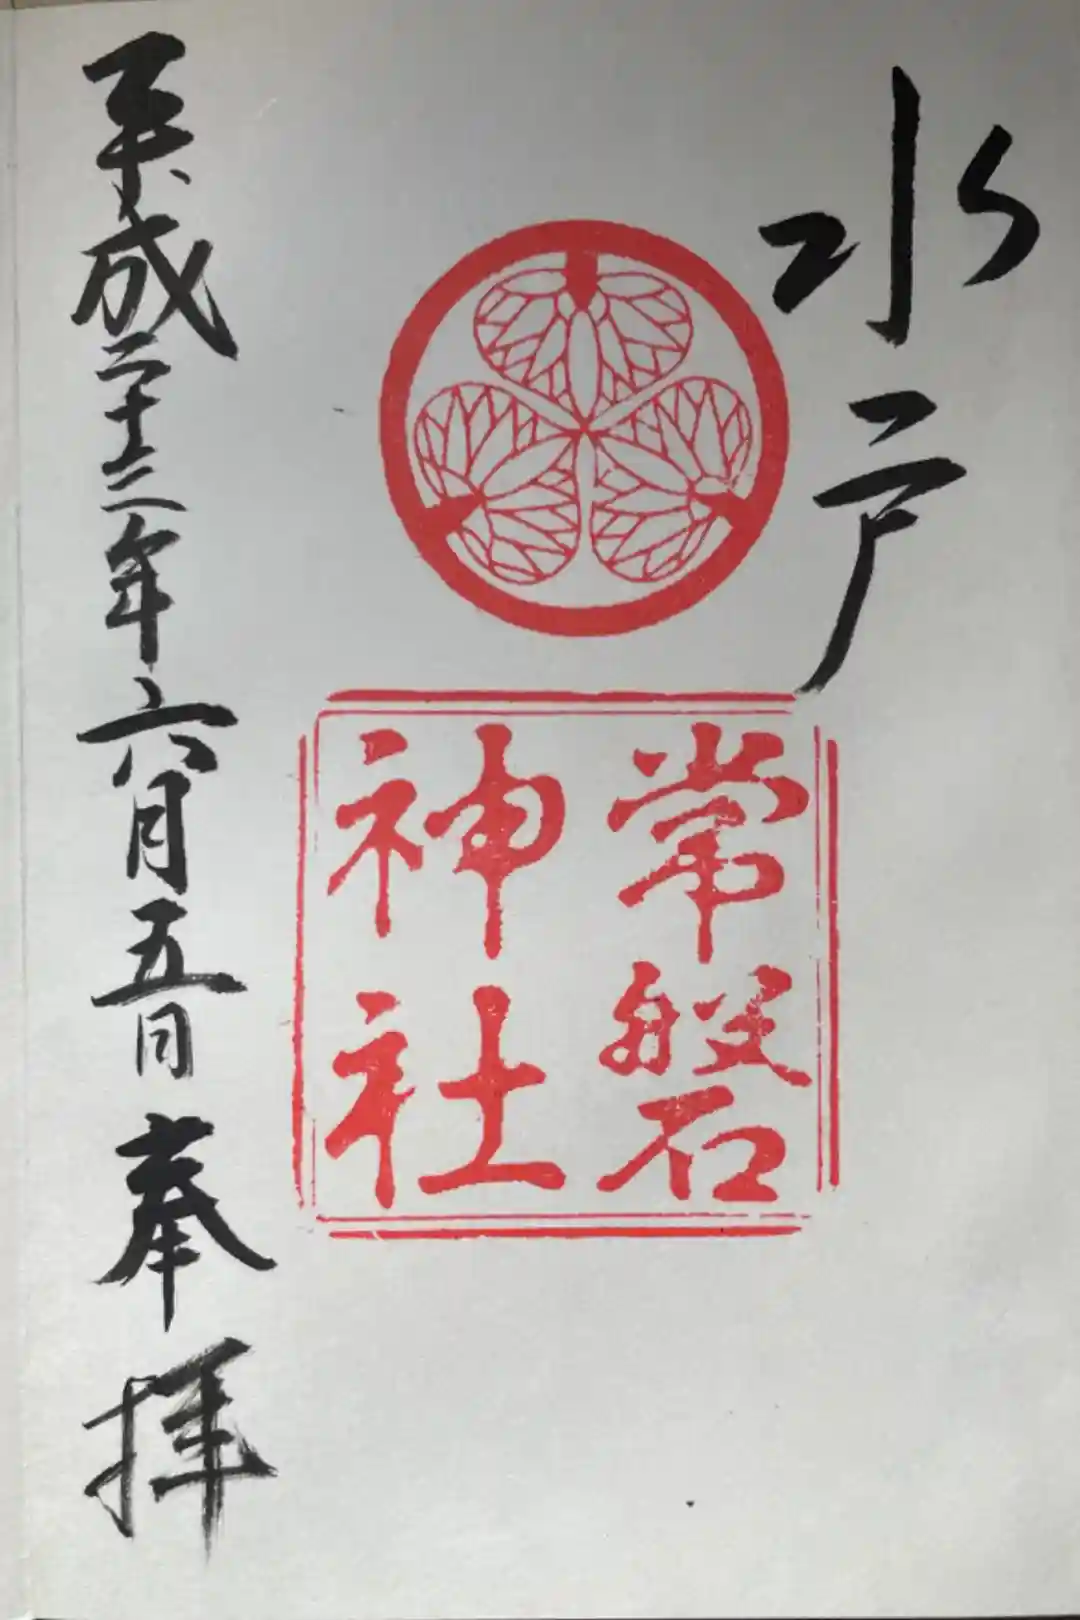 水戸
常磐
神社
平成二十三年六月五日 奉拝